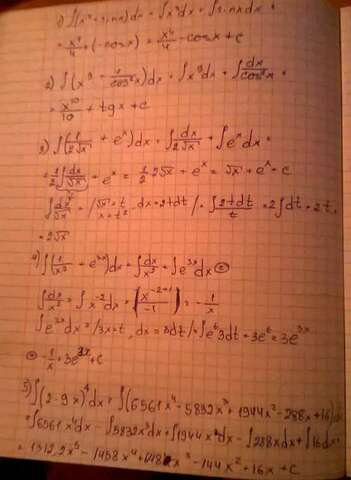 1) ∫(x³+sinx)dx = ∫x³dx + ∫sinxdx =
= x⁴/4 + (-cosx) = x⁴/4 - cosx + c
2) ∫(x⁹ + 1/cos²x)dx = ∫x⁹dx + ∫dx/cos²x =
= x¹⁰/10 + tgx + c
3) ∫(1/2√x + eˣ)dx = ∫dx/2√x + ∫eˣdx =
= 1/2 ∫dx/√x + eˣ = 1/2 2√x + eˣ = √x + eˣ + c
∫dx/√x = /√x = t, x = t², dx = 2tdt/ = ∫2tdt/t = 2∫dt = 2t =
= 2√x
4) ∫(1/x² + e³ˣ)dx = ∫dx/x² + ∫e³ˣdx ⊜
∫dx/x² = ∫x⁻²dx = (x⁻²⁺¹/-1) = -1/x
∫e³ˣdx = /3x=t, dx = 3dt/ = ∫eᵗ3dt = 3eᵗ = 3e³ˣ
⊜ -1/x + 3e³ˣ + c
5) ∫(2-9x)⁴dx = ∫(6561x⁴ - 5832x³ + 1944x² - 288x + 16)dx
= ∫6561x⁴dx - ∫5832x³dx + ∫1944x²dx - ∫288xdx + ∫16dx =
= 1312,2x⁵ - 1458x⁴ + 648x³ - 144x² + 16x + c